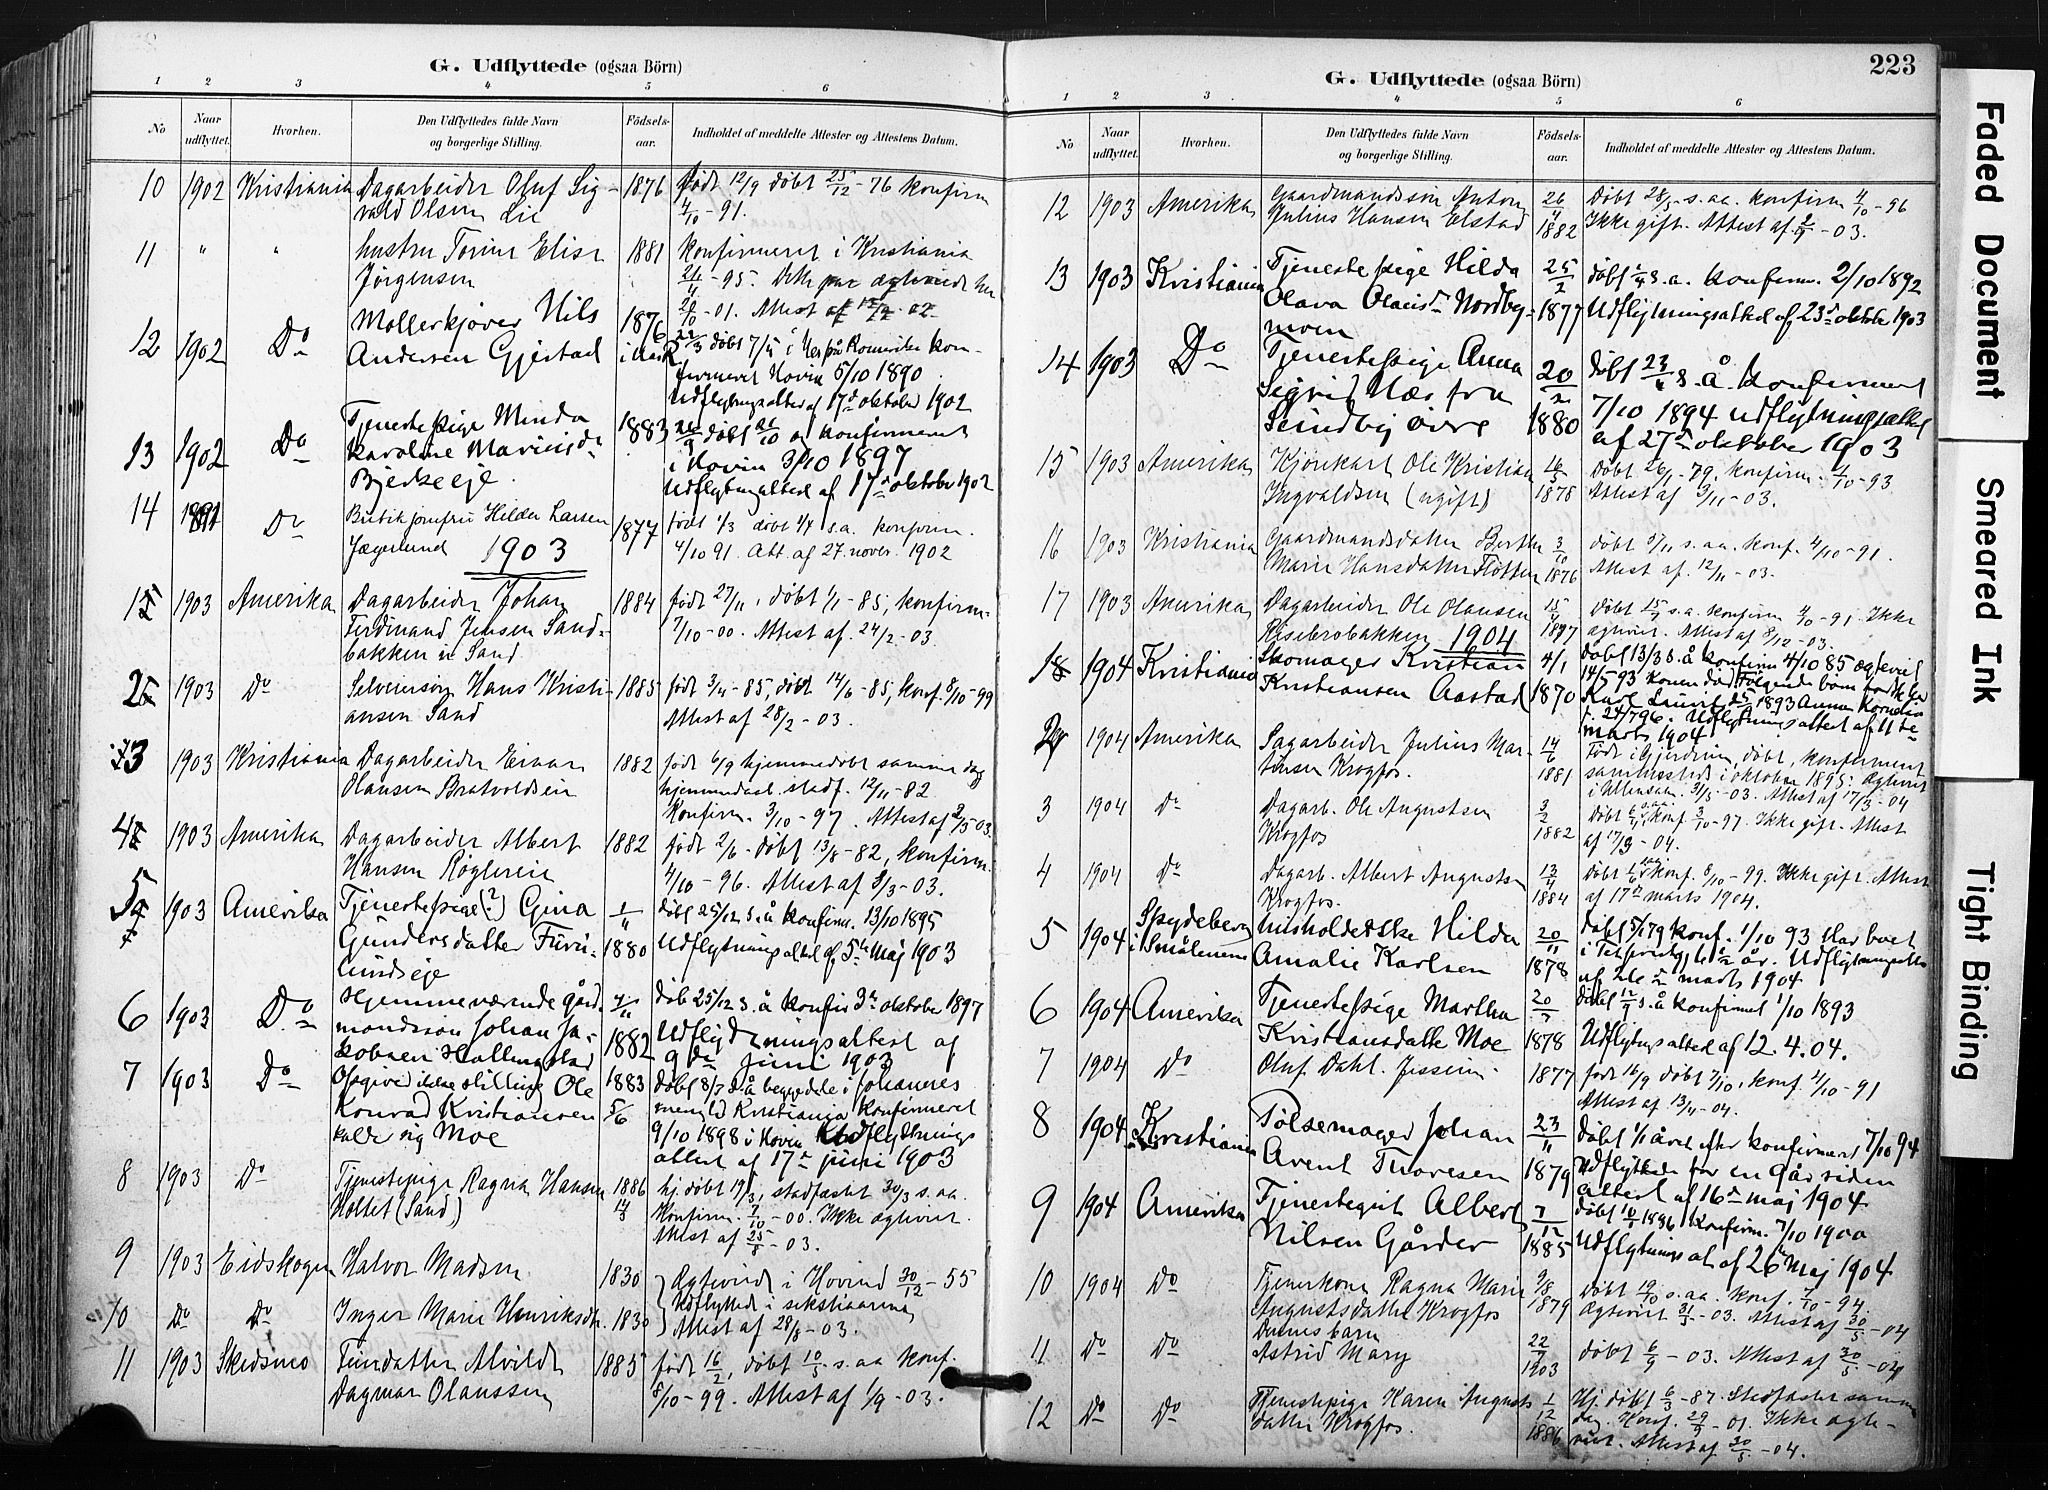 G. Udflyttede (ogsaa Börn)
1 2 3 4 5 6
No
Naar udflyttet.
Hvorhen.
Den Udflyttedes fulde Navn og borgerlige Stilling.
Födsels-aar.
Indholdet af meddelte Attester og Attestens Datum.
10 1902 Kristiania Dagarbeider Oluf Sig- 1876 Født 12/9 døbt 25/12 - 76 konfirm
vald Olsen Lie 4/10 - 91.
11 " " hustru Elise 1881 konfirmeret i Kristiania
Jørgensen 26/4 - 95.
20/10 - 01. Attest af
12 1902 Do Møllerkjører Nils 1876
Andersen Gjestad døbt 7/5 i Nes på Romerike kon-
firmeret Hovin 5/10 1890
Udflytngsattest af 17de oktober 1902
13 1902 Do Tjenestepige Minda 1883 26/9 døbt 21/10 og konfirmeret
Karoline Mariusdr i Hovin 3/10 1897
Bjerkeeje. Udflytngattest af 17de oktober 1902
14 Do Butikjomfru Hilda Larsen 1877 født 1/3 døbt 1/4 s.a. konfirm.
Jægerlund 4/10 91. Att. af 27. nover. 1902
1903
1 1903 Amerika Dagarbeider Johan 1884 født 27/11, døbt 1/1 - 85, konfirm.
Ferdinand Jensen Sand- 7/10 - 00. Attest af 24/2 - 03.
bakken u. Sand.
2 1903 Do Selveiersøn Hans Kristi- 1885 født 3/4 - 85, døbt 14/6 - 85, konf. 8/10 - 99
ansen Sand Attest af 28/2 - 03.
3 1903 Kristiania Dagarbeider Einar 1882 født 6/9 hjemmedøbt samme dag
Olausen Bratvoldseie hjemmedaab stadf. 12/11 - 82
konfirm. 3/10 - 97. Attest af 2/5 03.
4 1903 Amerika Dagarbeider Albert 1882 født 2/6 - døbt 13/8 - 82, konfirm.
Hansen Røglereie 4/10 - 96. Attest af 3/3 - 03.
5 1903 Amerika Tjenestepige (?) Gina 1/11 døbt 25/12 s.å konfirm. 13/10 1895
Gundersdatter Furu- 1880 Udflytningsattest af 5te Maj 1903
lundseje
6 1903 Do Hjemmeværende gård- døb 25/12 s.å konfir 3de oktober 1897
mandssøn Johan Ja- 1882 Udflydtningsattest af
kobsen Hallingstad 9de Juni 1903
7 1903 Do Opgived ikke stilling Ole 1883 døbt 8/7 s.å begge dele i Johannes
Konrad Kristiansen 5/6 menighd Kristiania konfirmeret
kalde sig Moe 9/10 1898 i Hovin Udflydtnings
attest af 17de juni 1903
8 1903 Do Tjenestepige Ragna Hansen 1886 hj. døbt 19/3, stadfæstet 30/3 s.aa.
Holtet (Sand) Konfirm. 7/10 - 00. Ikke agtvivt.
Attest af 25/8 - 03.
9 1903 Eidskogen Halvor Madsen 1830 Agtevied i Hovind 30/12 - 55
Udflyttede i sekstiaarene
10 Do Do Inger Marie Henriksdr. 1830 Attest af 28/8 - 03.
11 1903 Skedsmo Alvilde 1885 født 16/2, døbt 10/5 s.aa konf.
Dagmar Olaussen 8/10 - 99. Attest af 1/9 - 03.
G. Udflyttede (ogsaa Börn)
223
1 2 3 4 5 6
No
Naar udflyttet.
Hvorhen.
Den Udflyttedes fulde Navn og borgerlige Stilling.
Födsels-aar.
Indholdet af meddelte Attester og Attestens Datum.
12 1903 Amerika Gaardmandssøn Anton 26/4 Døbt 28/5 - s.aa. konfirm 4/10 - 96
Julius Hansen Elstad 1882 Ikke gift. Attest af 2/9 - 03.
13 1903 Kristiania Tjenestepige Hilda 25/2 døbt s.a. konfirm. 2/10 1892
Olava Olausdr Nordby- 1877 Udflytningsattest af 23de oktober 1903
moen
14 1903 Do Tjenestepige Anna 20/2 døbt 23/ s.å. konfirmert
Sigrid Næs fra 1880 7/10 1894 udflytningsattest
Sundby øvre af 27de oktober 1903
15 1903 Amerika Kjørekarl Ole Kristian 16/5 døbt 26/1 - 79. konfirm. 4/10 - 93
Ingvaldsen (ugift) 1878 Attest af 3/11 - 03.
16 1903 Kristiania Gaardmandsdatter Berthe 3/10 døbt 5/11 s.aa. konf. 4/10 - 91.
Marie Hansdatter Flotten 1876 Attest af. 12/11 - 03.
17 1903 Amerika Dagarbeider Ole Olausen 15/6 Døbt 15/7 s.a. konfirm 4/10 - 91. Ikke
Risebrobakken 1877 agtvivt. Attest af 8/12 - 03.
1904
1 1904 Kristiania Skomager Kristian 4/1 døbt 13/3 s.å konfirm 4/10 85 agtevied
Kristiansen Aastad 1870 14/5 93 konen død Følgende børn
Karl 1893 Anna Kornelia
f. 24/7 96. Udflytningsattest af 11te
marts 1904
2 1904 Amerika Sagarbeider Julius Mar- 14/6 Født i Gjerdrum, døbt, konfirmeret
tinsen Krogfos. 1881 sammesteds i oktober 1895. Agtvivt
i Ullensak. 31/5 - 03. Attest af 17/3 - 04
3 1904 Do Dagarb. Ole Augustsen 3/2 Døbt s.aa. konf. 3/10 - 97. Ikke gift. Attest
Krogfos 1882 af 17/3 - 04.
4 1904 Do Dagarb. Albert Augustsen 13/4 Døbt 1/6 konf. 8/10 - 99. Ikke gift. Attest
Krogfos. 1884 af 17de marts 1904.
5 1904 Spydeberg Hilda 20/11 døbt 5/1 79 konf. 1/10 93 Har boet
i Smålenene Amalie Karlsen 1878 i år. Udflytningsatte
af marts 1904
6 1904 Amerika Tjenestepige Martha 20/7 døbt 12/9 s.å konfirmet 1/10 1893
Kristiansdatte Moe 1878 Udflytngsattest af 12.4.04.
7 1904 Do Oluf Dahl. Jessein 1877 født 16/9 døbt 7/10, konf. 4/10 - 91
Attest af. 13/4 - 04.
8 1904 Kristiania Pølsemager Johan 23/11 døbt 1/1 året efter konfirmert 7/10 94
Arent Thoresen 1879 Udflyttede for en går siden
attest af 16de maj 1904
9 1904 Amerika Tjenestegut Albert 7/12 døbt 10/1 1886 konfirm. 7/10 1900
Nilsen Gårder 1885 Udflytnings at. af 26te Maj 1904
10 1904 Do Tjenerkone Ragna Marie 9/8 døbt 19/10 s.aa. konf. 7/10 - 94.
Augustsdatter Krogfos 1879 Agtvivt 31/5 - 03. Attest af 30/5 - 04
Dennes barn
11 Do Do Astrid Mary 22/7 1903 døbt 6/9 - 03. Attest af 30/5 - 04
12 Do Do Tjenestepige Karen Augusts 1/12 Hj. døbt 6/3 - 87. Stadfæstet samme
datter Krogfos. 1886 dag. Konf. 29/9 - 01. Ikke agte-
vivt. Attest af 30/5 - 04.
Faded Document
Smeared Ink
Tight Binding